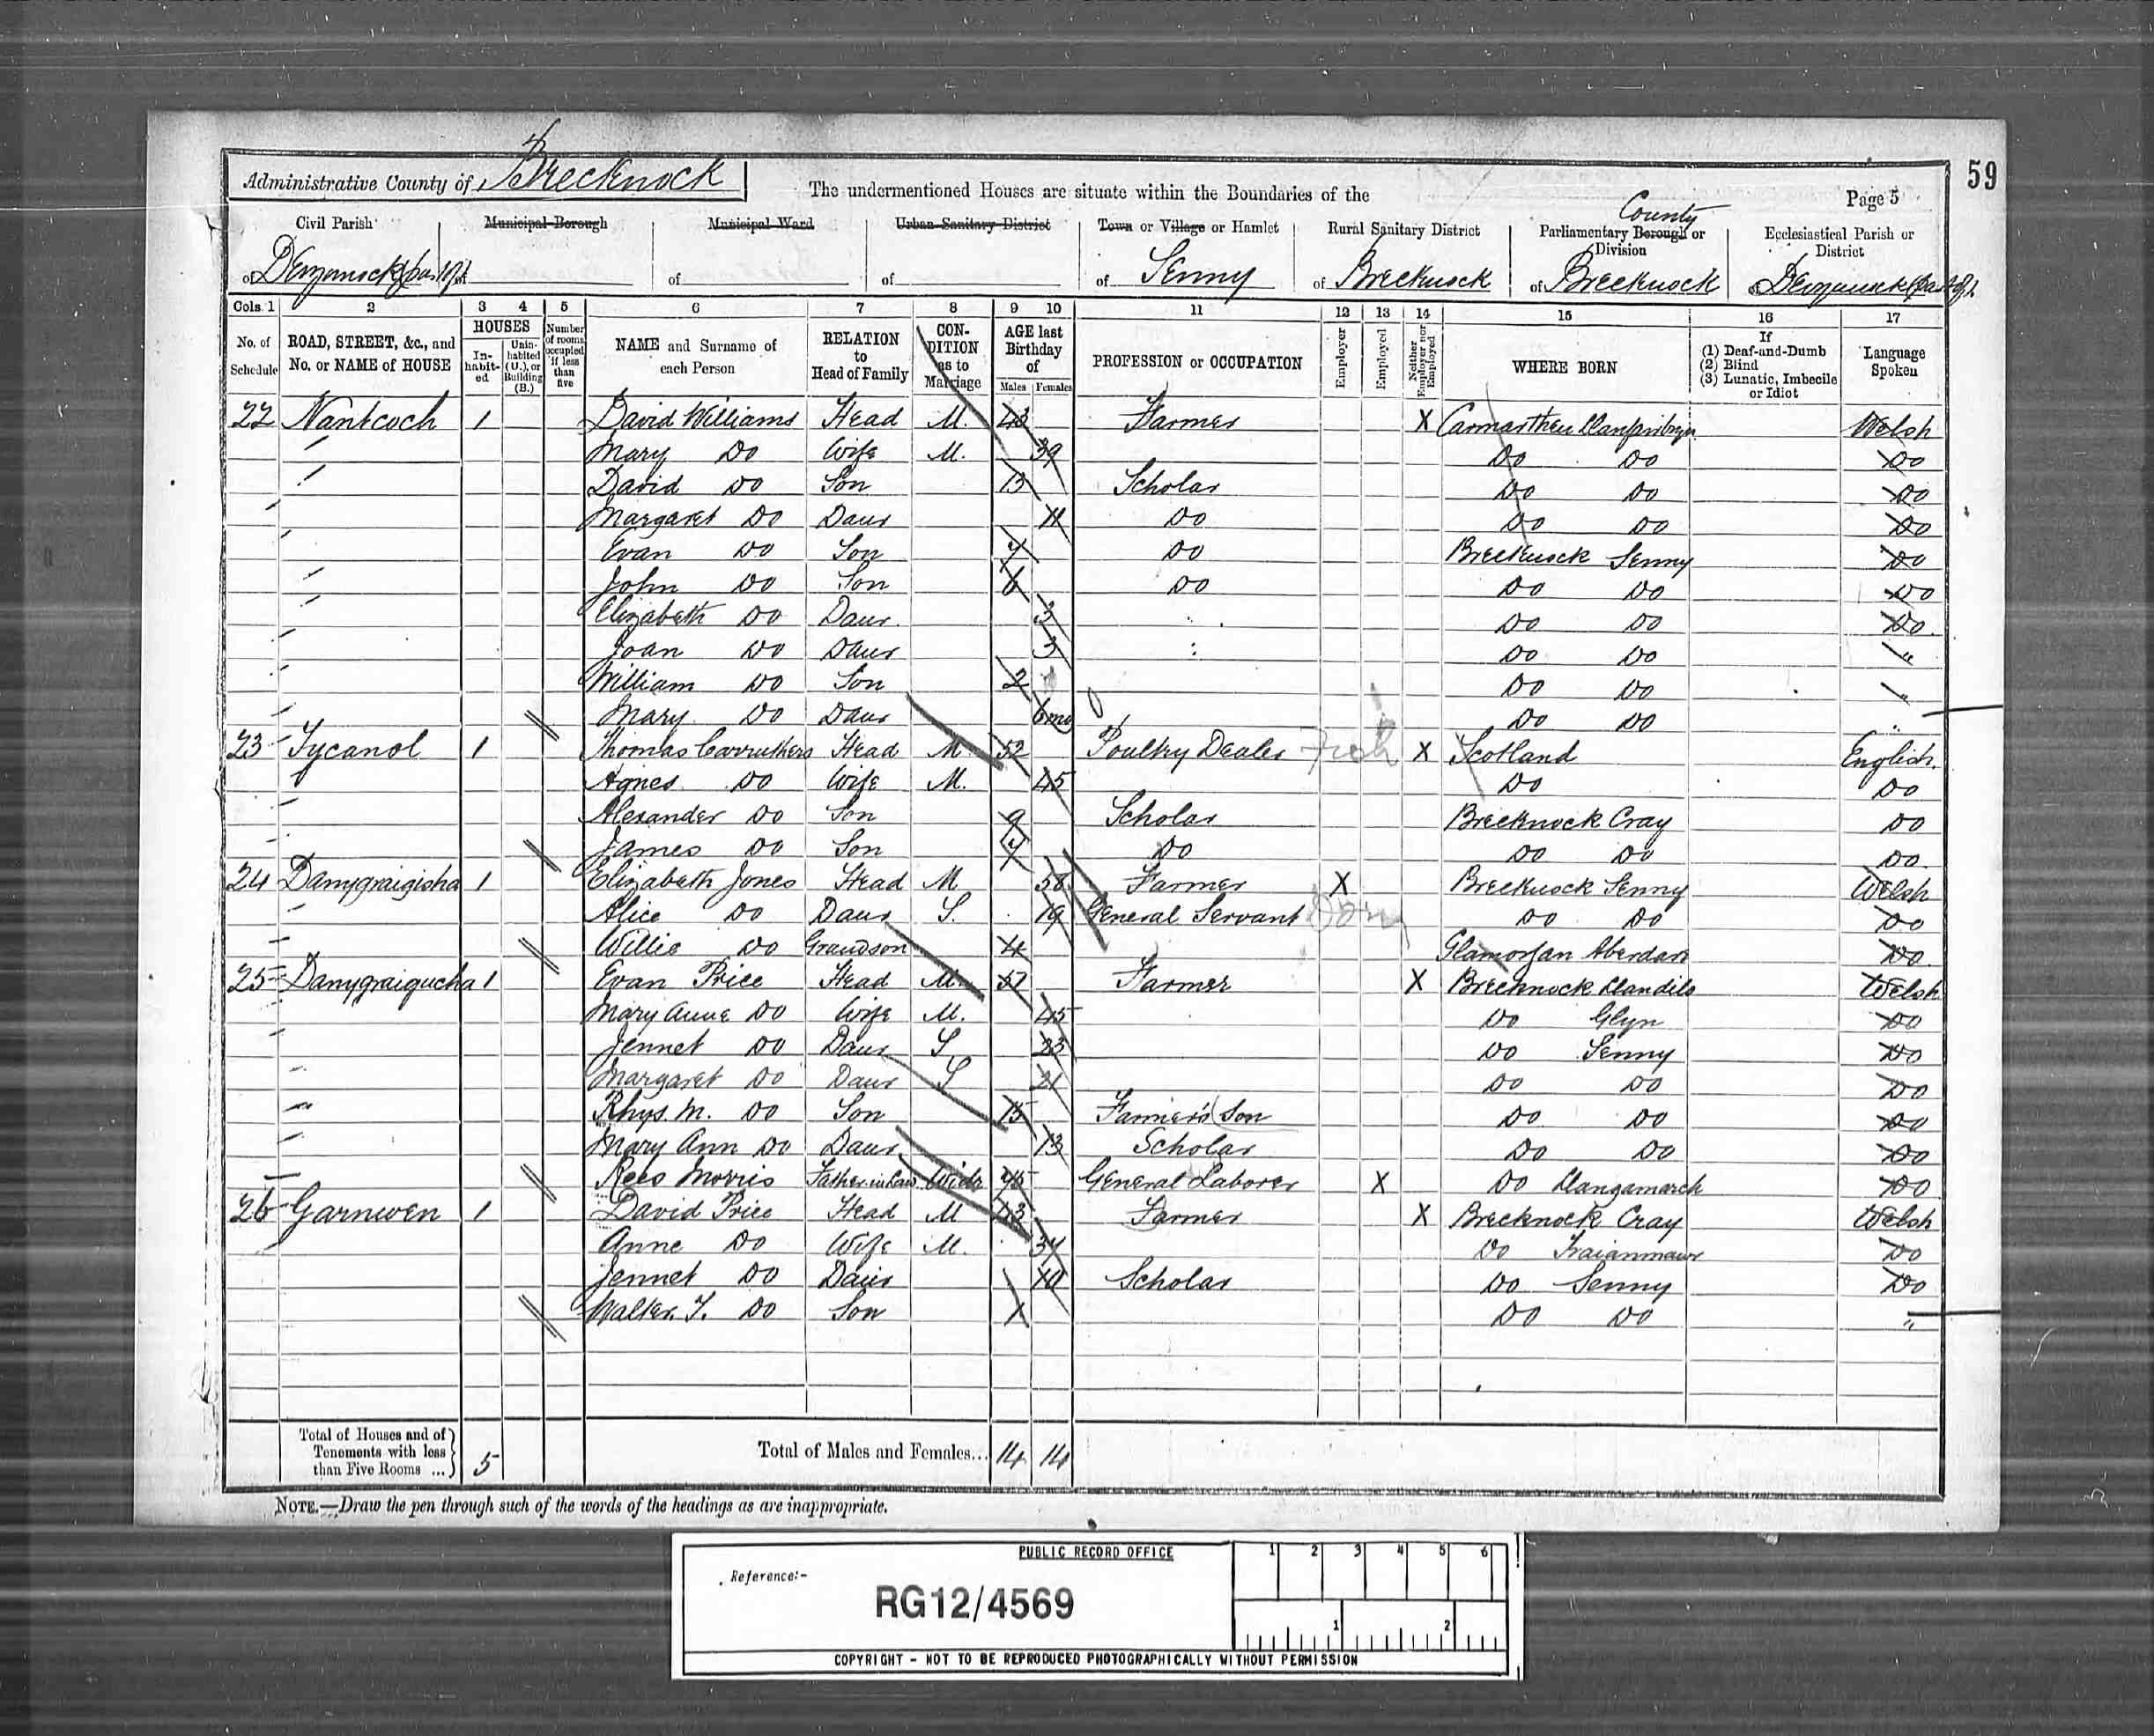 59
Administrative County of Brecknock
The undermentioned Houses are situate within the Boundaries of the
Page 5
Civil Parish
Municipal Borough
Municipal Ward
Urban Sanitary District
Town or Village or Hamlet
Rural Sanitary District
County
Parliamentary Borough or Division
Ecclesiastical Parish or District
of Devynock (part of)
of
of
of Senny
of Brecknock
of Brecknock
of Devynnock (part of).
Cols. 1 2 3 4 5 6 7 8 9 10 11 12 13 14 15 16 17
No. of Schedule
ROAD, STREET, &c., and No. or NAME of HOUSE
HOUSES
In-habit-ed
Unin-habited (U.), or Building (B.)
Number of rooms occupied if less than five
NAME and Surname of each Person
RELATION to Head of Family
CON-DITION as to Marriage
AGE last Birthday of
Males Females
PROFESSION or OCCUPATION
Employer
Employed
Neither Employer nor Employed
WHERE BORN
If
(1) Deaf-and-Dumb
(2) Blind
(3) Lunatic, Imbecile or Idiot
Language Spoken
22 Nantcoch 1 David Williams Head M. 43 Farmer X Carmarthen Welsh
Mary Do Wife M. 39 Do Do Do
David Do Son 13 Scholar Do Do Do
Margaret Do Daur 11 Do Do Do Do
Evan Do Son 7 Do Brecknock Senny Do
John Do Son 6 Do Do Do Do
Elizabeth Do Daur 3 Do Do Do
Joan Do Daur 3 Do Do "
William Do Son 2 Do Do "
Mary Do Daur 6mo Do Do "
23 Tycanol 1 Thomas Carruthers Head M 52 Poultry Dealer X Scotland English
Agnes Do Wife M. 45 Do Do
Alexander Do Son 9 Scholar Brecknock Cray Do
James Do Son 7 Do Do Do Do
24 Danygraigisha 1 Elizabeth Jones Head M 58 Farmer X Brecknock Senny Welsh
Alice Do Daur S. 19 General Servant Dom Do Do Do
Willie Do Grandson 4 Glamorgan Aberdare Do
25 Danygraigucha 1 Evan Price Head M. 57 Farmer X Brecknock Llandilo Welsh
Mary Anne Do Wife M. 45 Do Glyn Do
Jennet Do Daur S 23 Do Senny Do
Margaret Do Daur S 21 Do Do Do
Rhys. M. Do Son 15 Farmer's Son Do Do Do
Mary Ann Do Daur 13 Scholar Do Do Do
Rees Morris Father in Law Widr 75 General Laborer X Do Llangamarch Do
26 Garnwen 1 David Price Head M 43 Farmer X Brecknock Cray Welsh
Anne Do Wife M. 37 Do Traianmawr Do
Jennet Do Daur 10 Scholar Do Senny Do
Walter. T. Do Son 1 Do Do "
Total of Houses and of Tenements with less than Five Rooms ... 5
Total of Males and Females... 14 14
NOTE.—Draw the pen through such of the words of the headings as are inappropriate.
PUBLIC RECORD OFFICE
Reference:-
RG12/4569
1 2 3 4 5 6
1 2
COPYRIGHT - NOT TO BE REPRODUCED PHOTOGRAPHICALLY WITHOUT PERMISSION